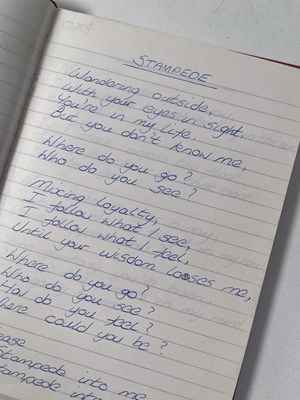 STAMPEDE
Wondering outside,
With your eyes in sight.
You're in my life,
But you don't know me,
Where do you go?
Who do you see?
Mixing loyalty,
I follow what I see,
I follow what I feel,
Until your wisdom looses me,
Where do you go?
Who do you see?
How do you feel?
Where could you be?
ease
Stampede into me
tampede into